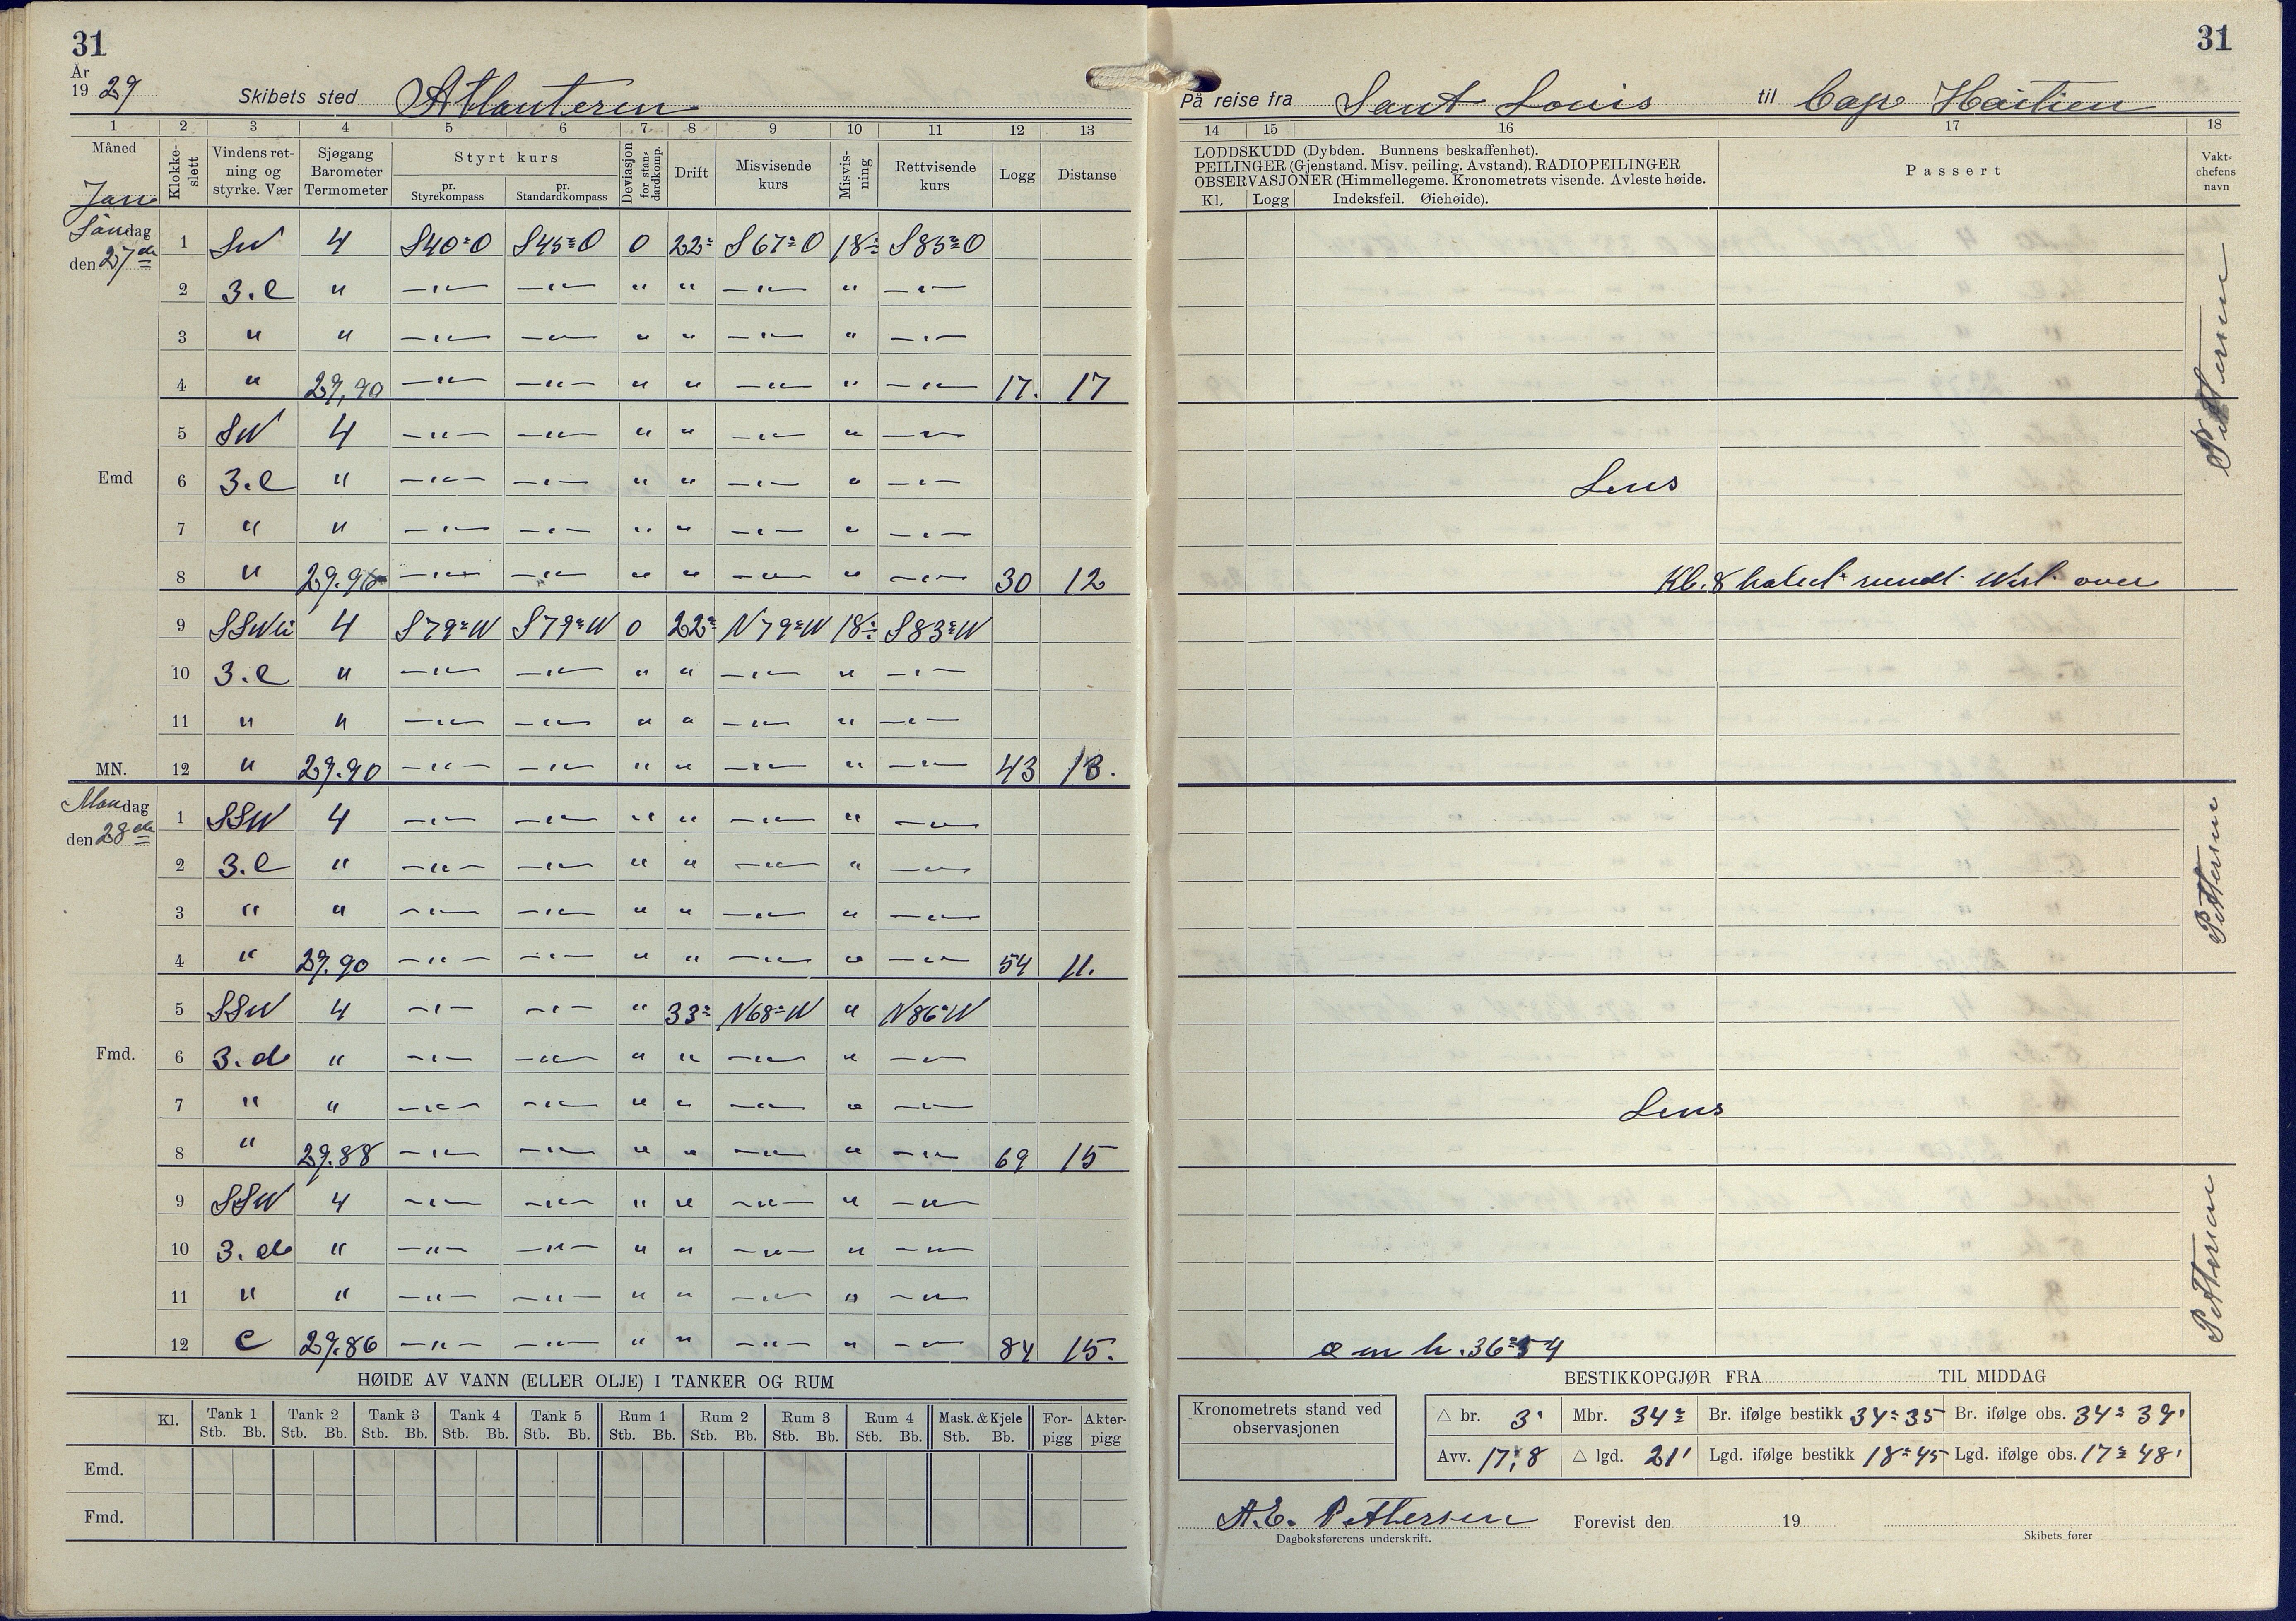 31
31
År
19 29 Skibets sted Atlanteren
På reise fra Sant Louis til Cap Haitien
1 2 3 4 5 6 7 8 9 10 11 12 13
14 15 16 17 18
Måned Klokkeslett Vindens retning og styrke. Vær Sjøgang Barometer Termometer Styrt kurs pr. Styrekompass pr. Standardkompass Deviasjon for standardkomp. Drift Misvisende kurs Misvisning Rettvisende kurs Logg Distanse
LODDSKUDD (Dybden. Bunnens beskaffenhet).
PEILINGER (Gjenstand. Misv. peiling. Avstand). RADIOPEILINGER
OBSERVASJONER (Himmellegeme. Kronometrets visende. Avleste høide.
Kl. Logg Indeksfeil. Øiehøide).
Passert
Vaktchefens navn
Jan
Søndag den 27de
1 SW 4 S40°O S45°O 0 22° S67°O 18° S85°O
2 3.c " —"— —"— " " —"— " —"—
3 " " —"— —"— " " —"— " —"—
4 " 29,90 —"— —"— " " —"— " —"— 17. 17
5 SW 4 —"— —"— " " —"— " —"—
Emd 6 3.c " —"— —"— " " —"— " —"— Lens
7 " " —"— —"— " " —"— " —"—
8 " 29.90 —"— —"— " " —"— " —"— 30 12 Kl. 8 halet rundt West over
9 4 S79°W S79°W 0 22° N79°W 18° S83°W
10 3.c " —"— —"— " " —"— " —"—
11 " " —"— —"— " " —"— " —"—
MN. 12 " 29.90 —"— —"— " " —"— " —"— 43 13.
Mandag den 28de
1 SSW 4 —"— —"— " " —"— " —"—
2 3.c " —"— —"— " " —"— " —"—
3 " " —"— —"— " " —"— " —"—
4 " 29.90 —"— —"— " " —"— " —"— 54 11.
5 SSW 4 —"— —"— " 33° N68°W " N86°W
Fmd. 6 3. " —"— —"— " " —"— " —"—
7 " " —"— —"— " " —"— " —"— Lens
8 " 29.88 —"— —"— " " —"— " —"— 69 15
9 SSW 4 —"— —"— " " —"— " —"—
10 3. " —"— —"— " " —"— " —"—
11 " " —"— —"— " " —"— " —"—
12 c 29.86 —"— —"— " " —"— " —"— 84 15. m h. 36°54
Pettersen
Pettersen
Pettersen
HØIDE AV VANN (ELLER OLJE) I TANKER OG RUM
Kl. Tank 1 Stb. Bb. Tank 2 Stb. Bb. Tank 3 Stb. Bb. Tank 4 Stb. Bb. Tank 5 Stb. Bb. Rum 1 Stb. Bb. Rum 2 Stb. Bb. Rum 3 Stb. Bb. Rum 4 Stb. Bb. Mask. & Kjele Stb. Bb. Forpigg Akterpigg
Emd.
Fmd.
BESTIKKOPGJØR FRA TIL MIDDAG
Kronometrets stand ved observasjonen
△ br. 3' Mbr. 34° Br. ifølge bestikk 34°35 Br. ifølge obs. 34° 39'
Avv. 17,8 △ lgd. 21' Lgd. ifølge bestikk 18°45 Lgd. ifølge obs. 17° 48'
A.E. Pettersen Forevist den 19
Dagboksførerens underskrift. Skibets fører